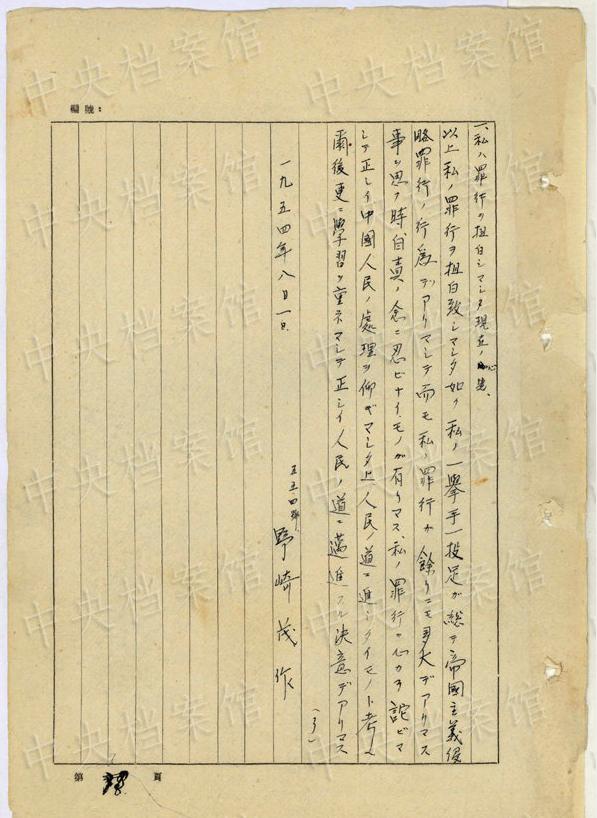 編號:
一、私ハ罪行ヲ担白シマシタ現在ノ心境、
以上私ノ罪行ヲ担白致シマシタ如ク私ノ一挙手一投足ガ総テ帝國主義侵
略罪行ノ行爲デアリマシテ而モ私ノ罪行ガ餘リニモ多大デアリマス
事ヲ思フ時、自責ノ念ニ忍ビナイモノガ有リマス、私ノ罪行ヲ心カラ詑ビマ
シテ正シイ中國人民ノ處理ヲ仰ギマシタ上人民ノ道ニ進ミタイモノト考ヘ
爾後更ニ學習ヲ重ネマシテ正シイ人民ノ道ニ邁進スル決意デアリマス
(了)
一九五四年八月一日
五五四號、
野崎茂作
第 頁
中央档案馆